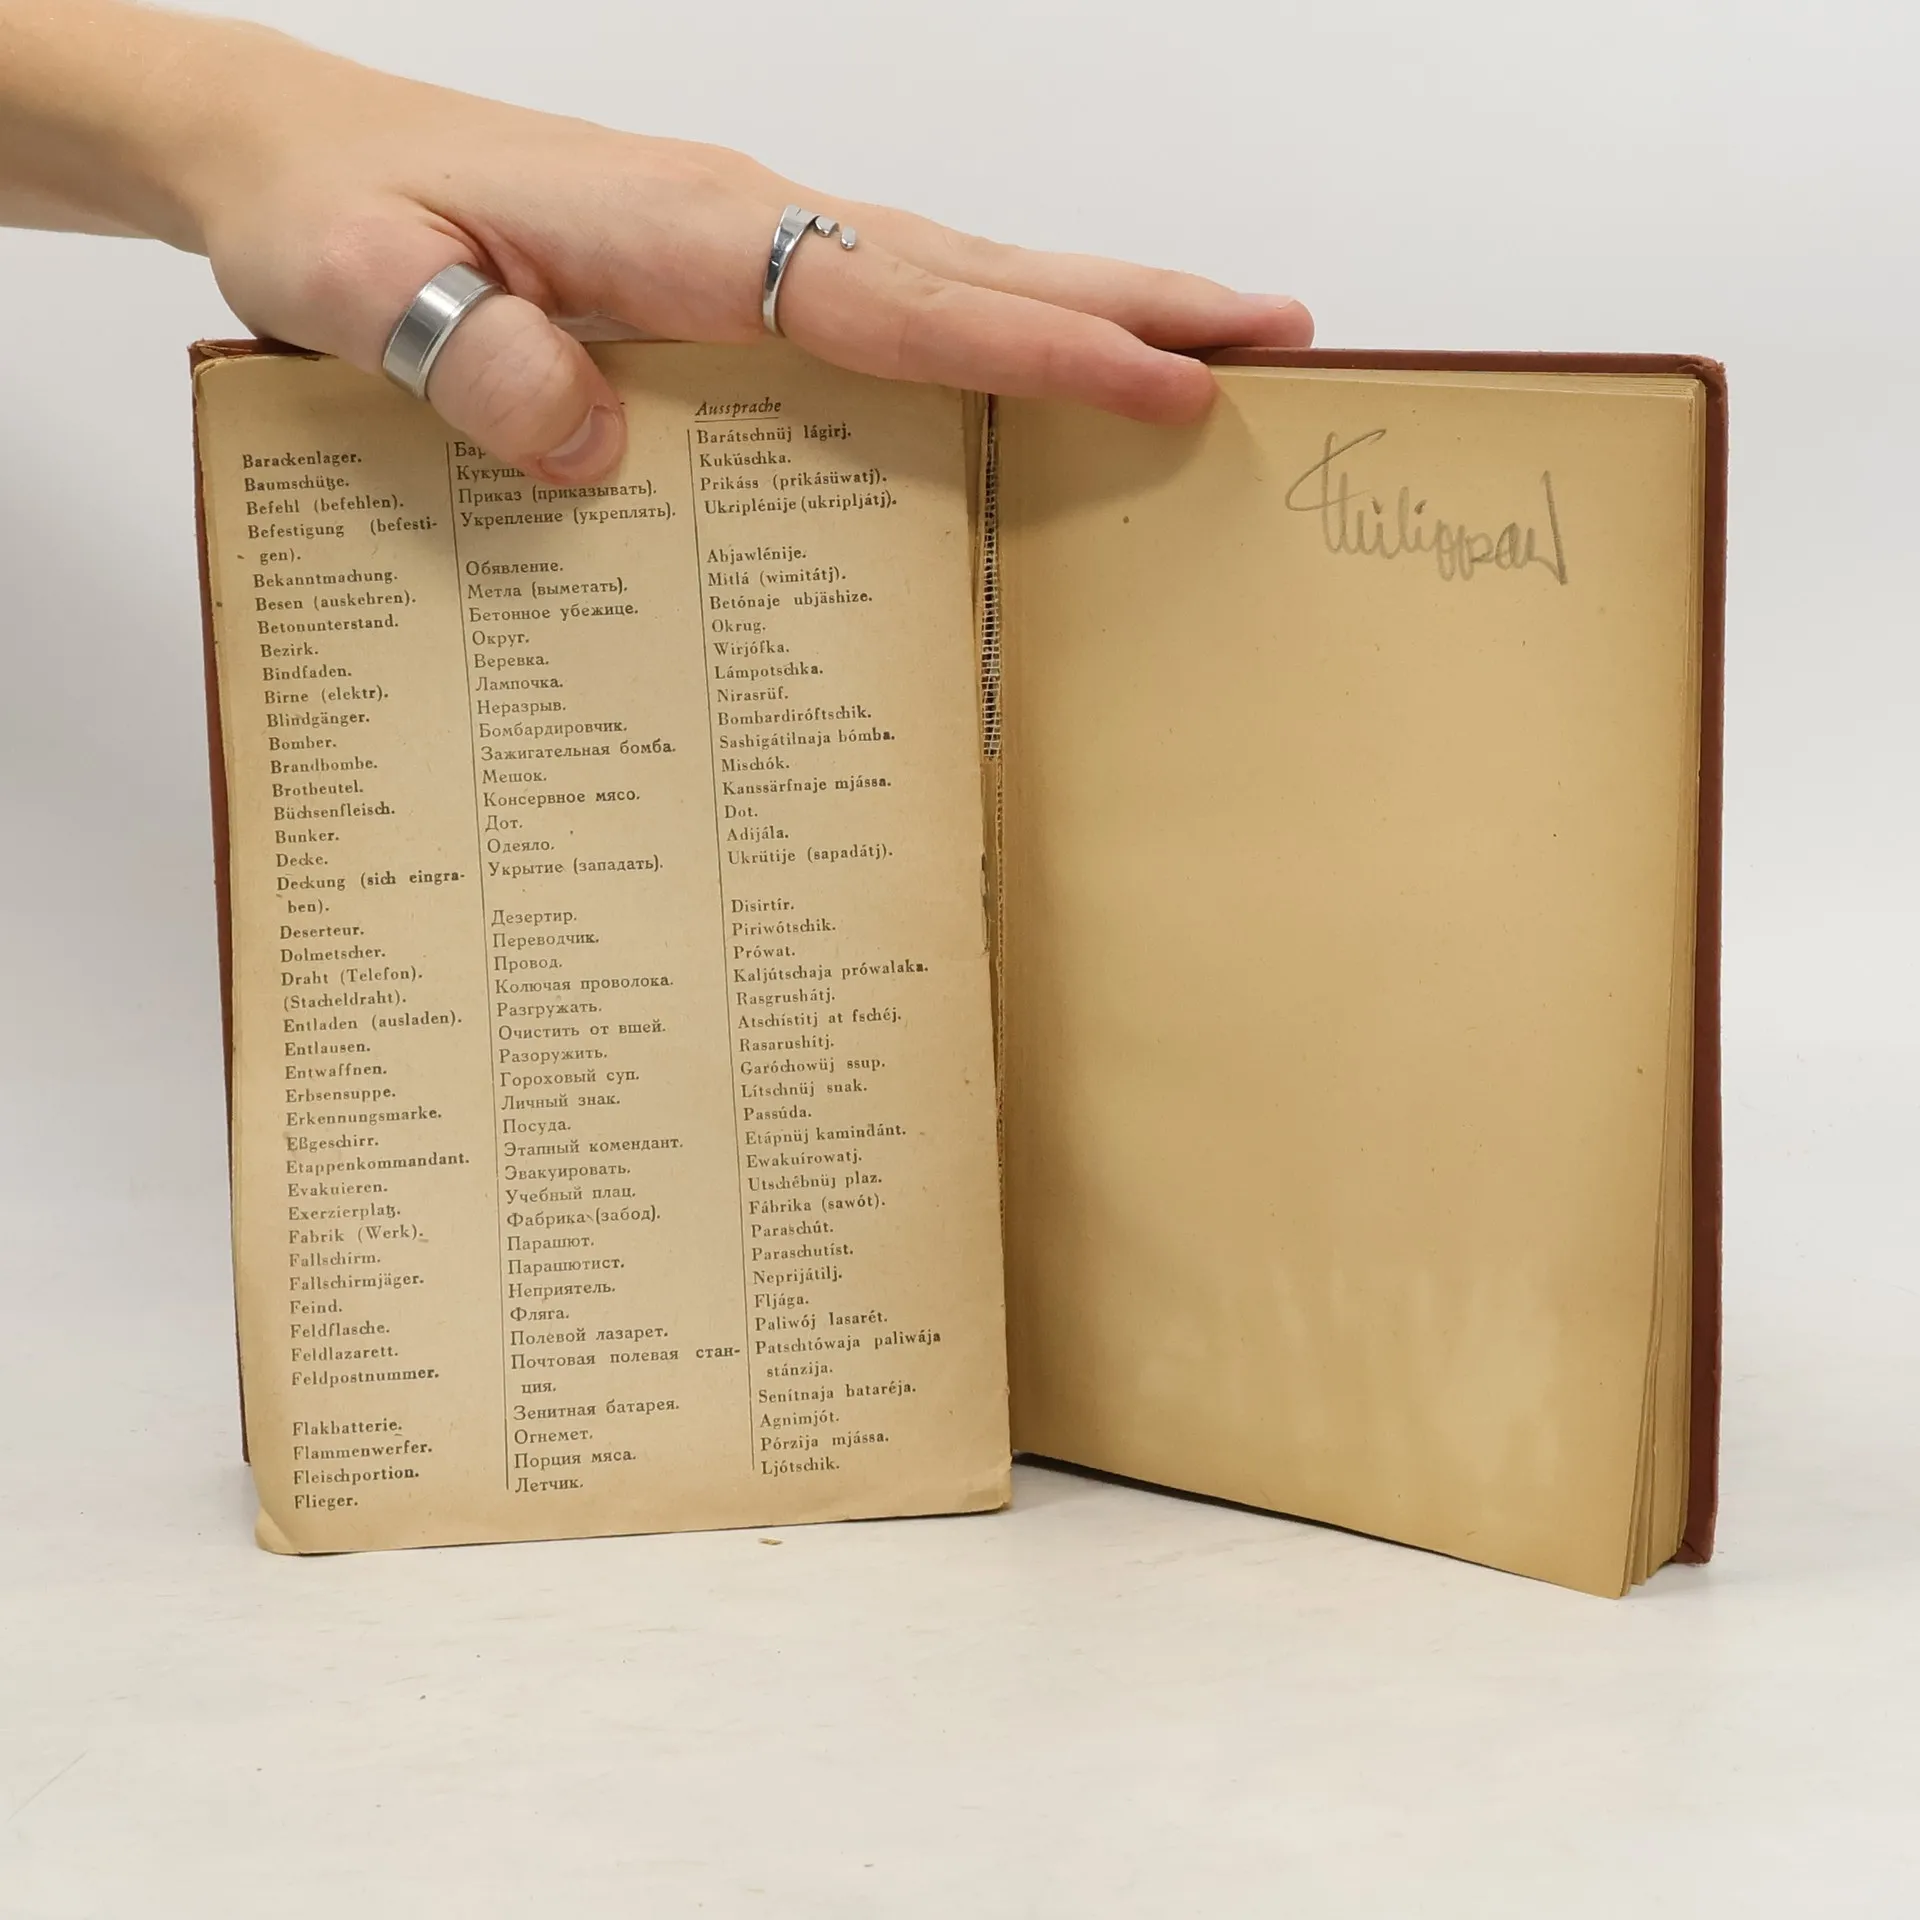 Aussprache
Barackenlager. Бар Barátschnüj lágirj.
Baumschütze. Кукушк Kukúschka.
Befehl (befehlen). Приказ (приказывать). Prikáss (prikásüwatj).
Befestigung (befesti- Укрепление (укреплять). Ukriplénije (ukripljátj).
gen).
Bekanntmachung. Обявление. Abjawlénije.
Besen (auskehren). Метла (выметать). Mitlá (wimitátj).
Betonunterstand. Бетонное убежице. Betónaje ubjäshize.
Bezirk. Округ. Okrug.
Bindfaden. Веревка. Wirjófka.
Birne (elektr). Лампочка. Lámpotschka.
Blindgänger. Неразрыв. Nirasrüf.
Bomber. Бомбардировчик. Bombardiróftschik.
Brandbombe. Зажигательная бомба. Sashigátilnaja bómba.
Brotbeutel. Мешок. Mischók.
Büchsenfleisch. Консервное мясо. Kanssärfnaje mjássa.
Bunker. Дот. Dot.
Decke. Одеяло. Adijála.
Deckung (sich eingra- Укрытие (западать). Ukrütije (sapadátj).
ben).
Deserteur. Дезертир. Disirtír.
Dolmetscher. Переводчик. Piriwótschik.
Draht (Telefon). Провод. Prówat.
(Stacheldraht). Колючая проволока. Kaljútschaja prówalaka.
Entladen (ausladen). Разгружать. Rasgrushátj.
Entlausen. Очистить от вшей. Atschístitj at fschéj.
Entwaffnen. Разоружить. Rasarushítj.
Erbsensuppe. Гороховый суп. Garóchowüj ssup.
Erkennungsmarke. Личный знак. Lítschnüj snak.
Eßgeschirr. Посуда. Passúda.
Etappenkommandant. Этапный комендант. Etápnüj kamindánt.
Evakuieren. Эвакуировать. Ewakuírowatj.
Exerzierplatz. Учебный плац. Utschébnüj plaz.
Fabrik (Werk). Фабрика (забод). Fábrika (sawót).
Fallschirm. Парашют. Paraschút.
Fallschirmjäger. Парашютист. Paraschutíst.
Feind. Неприятель. Neprijátilj.
Feldflasche. Фляга. Fljága.
Feldlazarett. Полевой лазарет. Paliwój lasarét.
Feldpostnummer. Почтовая полевая стан- Patschtówaja paliwája
ция. stánzija.
Flakbatterie. Зенитная батарея. Senítnaja bataréja.
Flammenwerfer. Огнемет. Agnimjót.
Fleischportion. Порция мяса. Pórzija mjássa.
Flieger. Летчик. Ljótschik.